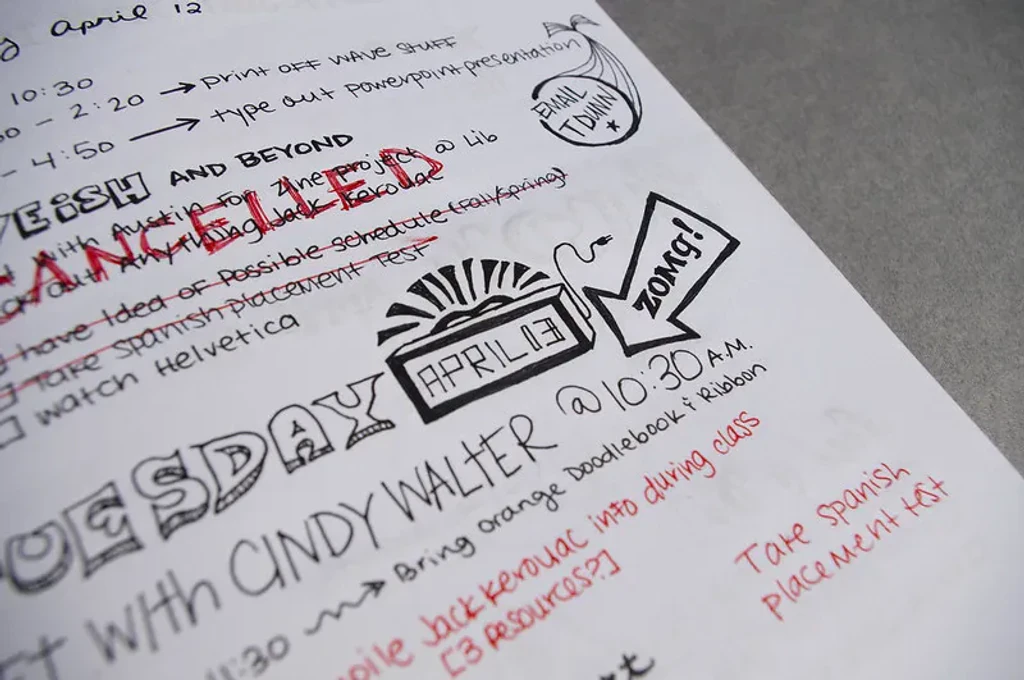 April 12
10:30
- 2:20 → print off wave stuff
- 4:50 → type out powerpoint presentation
EMAIL
T DUNN
EISH AND BEYOND
with Austin for zine project @ Lib
CANCELLED
out Anything Jack Kerouac
have Idea of Possible schedule (Fall/Spring)
Take spanish placement Test
watch Helvetica
ZOMG!
APRIL 13
TUESDAY
with CINDY WALTER @ 10:30 A.M.
11:30 → Bring orange Doodlebook & Ribbon
Jack Kerouac info during class
[3 resources?]
Take spanish
placement test